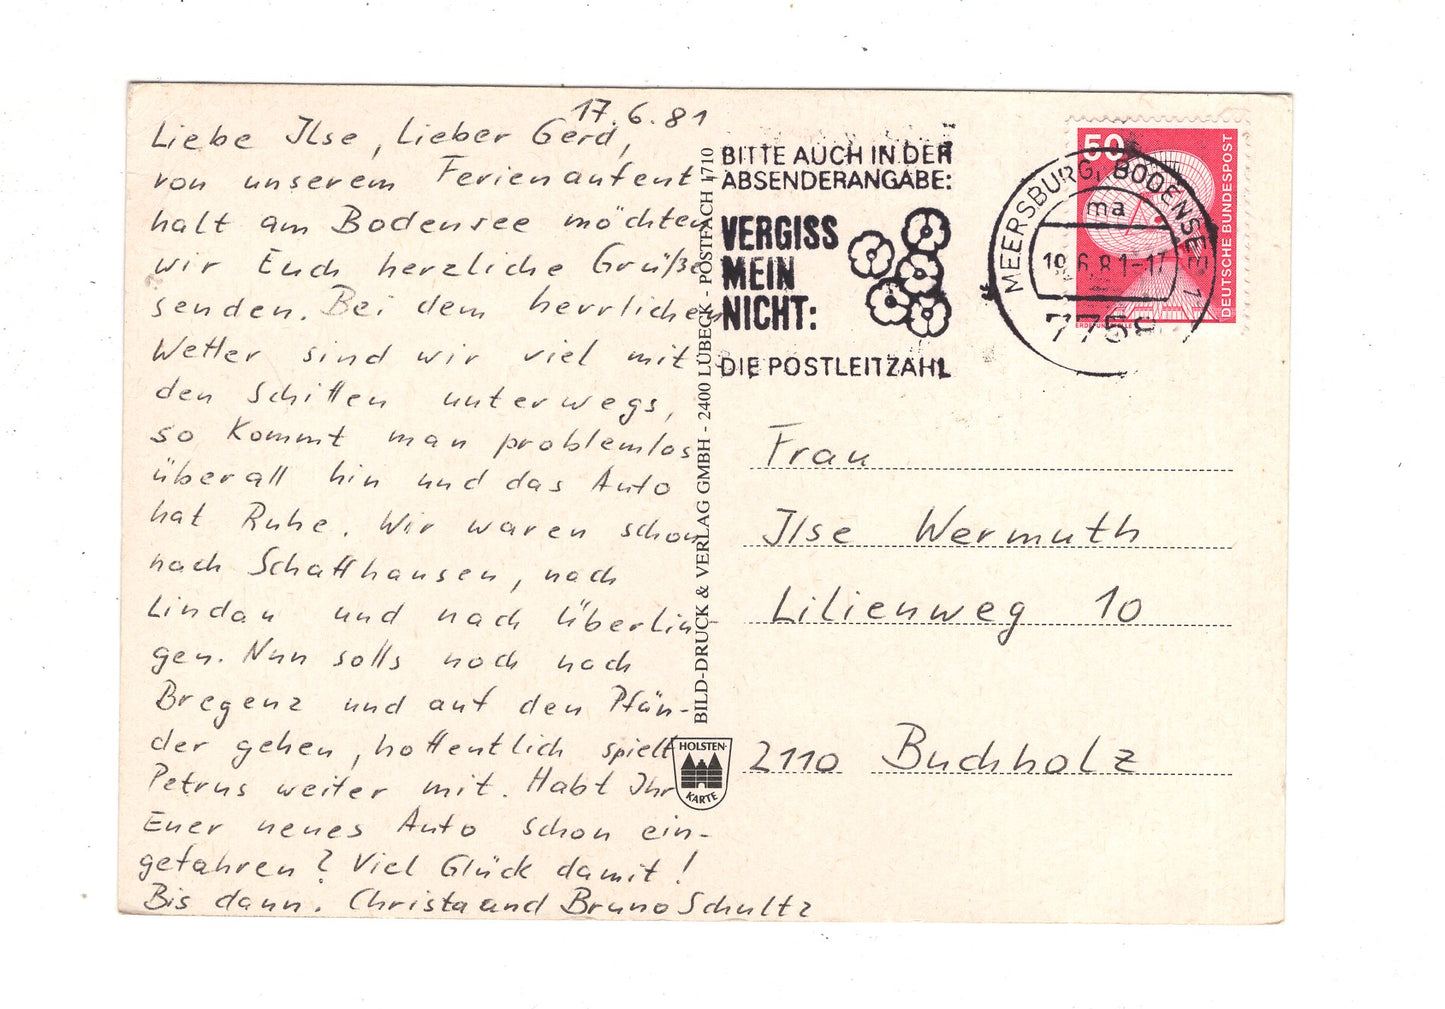 17.6.81
Liebe Ilse, Lieber Gerd,
von unserem Ferienaufent-
halt am Bodensee möchten
wir Euch herzliche Grüße
senden. Bei dem herrlichen
Wetter sind wir viel mit
den Schiffen unterwegs,
so kommt man problemlos
überall hin und das Auto
hat Ruhe. Wir waren schon
nach Schaffhausen, nach
Lindau und nach Überlin-
gen. Nun solls noch nach
Bregenz und auf den Pfän-
der gehen, hoffentlich spielt
Petrus weiter mit. Habt Ihr
Euer neues Auto schon ein-
gefahren? Viel Glück damit!
Bis dann. Christa und Bruno Schultz
BILD-DRUCK & VERLAG GMBH - 2400 LÜBECK - POSTFACH 1710
HOLSTEN-
KARTE
BITTE AUCH IN DER
ABSENDERANGABE:
VERGISS
MEIN
NICHT:
DIE POSTLEITZAHL
MEERSBURG, BODENSEE 1
ma
6.81-17
7758
50
DEUTSCHE BUNDESPOST
Frau
Ilse Wermuth
Lilienweg 10
2110 Buchholz